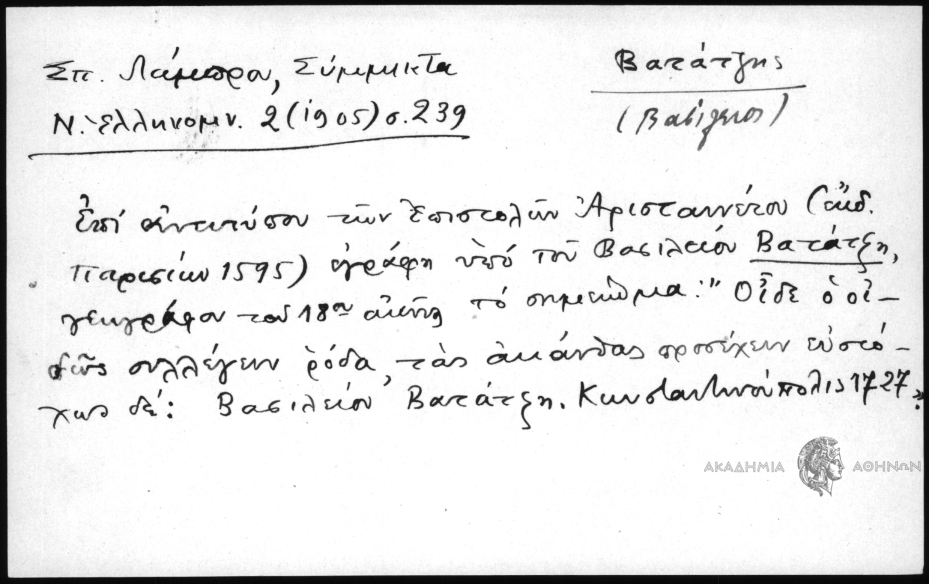 Σπ. Λάμπρου, Σύμμικτα
Ν. Ἑλληνομν. 2 (1905) σ. 239
Βατάτζης
(Βασίλειος)
Ἐπί ἀντιτύπου τῶν Ἐπιστολῶν Ἀρισταινέτου (ἔκδ.
Παρισίων 1595) ἐγράφη ὑπό τοῦ Βασιλείου Βατάτζη,
γεωγράφου τοῦ 18ου αἰῶνος τό σημείωμα: " Οἶδε ὁ εἰ-
δῶς συλλέγειν ῥόδα, τὰς ἀκάνθας προσέχειν εὐστό-
χως δέ: Βασιλείου Βατάτζη. Κωνσταντινούπολις 1727."
ΑΚΑΔΗΜΙΑ ΑΘΗΝΩΝ